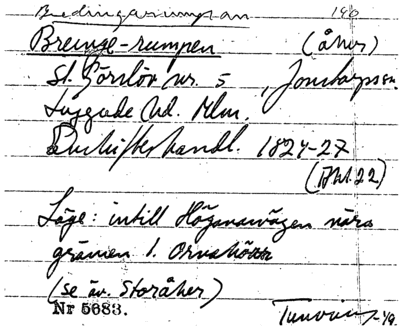 Bredingarumpan 190
Breinge-rumpen (åker)
St. Görslöv nr. 5, Jonstorps sn.
Luggude hd. Mlm.
Enskifteshandl. 1824-27
(Akt. 22)
Läge: intill Höganäsvägen nära
gränsen t.
(se äv. Storåker)
Nr 5683.